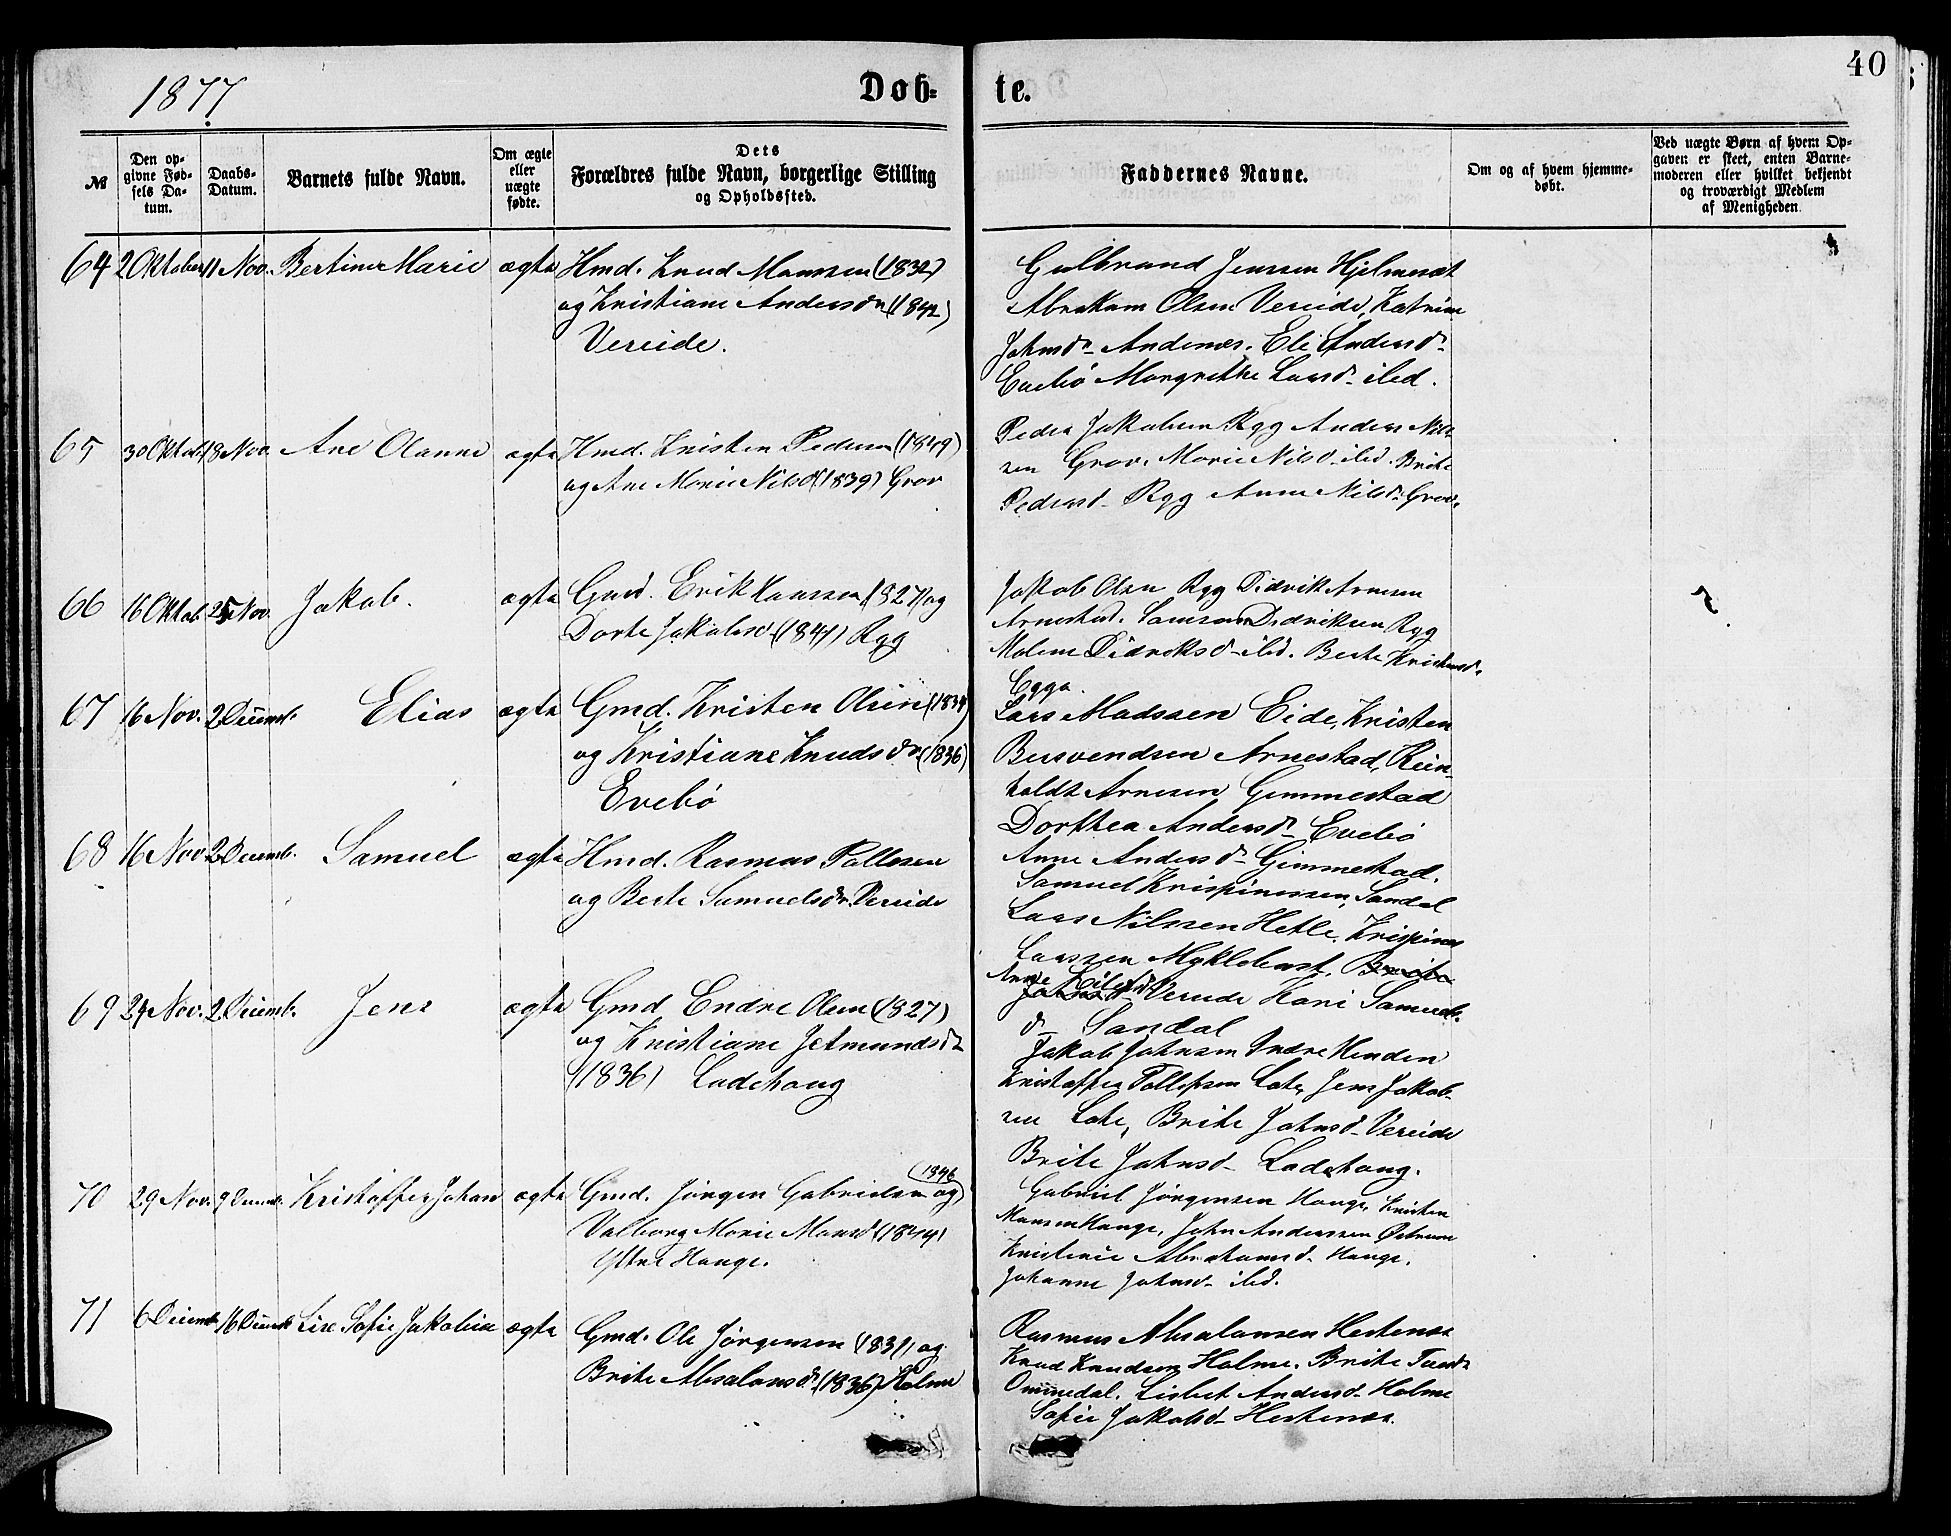 40
1877
Døb-
te.
№
Den op-
givne Fød-
sels Da-
tum.
Daabs-
Datum.
Barnets fulde Navn.
Om ægte
eller
uægte
fødte.
Dets
Forældres fulde Navn, borgerlige Stilling
og Opholdssted.
Faddernes Navne.
Om og af hvem hjemme-
døbt.
Ved uægte Børn af hvem Op-
gaven er skeet, enten Barne-
moderen eller hvilket bekjendt
og troværdigt Medlem
af Menigheden.
64 2 Oktober 11 Nov. Bertine Marie ægte Hmd. Knud Monssen (1832)
og Kristiane Andersdr. (1842)
Vereide.
Gulbrand Jenssen Hjelmeset
Abraham Olsen Vereide, Katrine
Johnsdr- Andenæs. Eli Andersd-
Evebø Margrethe Larsd- ibd.
65 30 Oktob. 18 Nov. Ane Olanne ægte Hmd. Kristen Pedersen (1849)
og Ane Marie Nilsd (1839) Grov
Peder Jakobsen Ryg Anders Nils-
sen Grov. Marie Nilsd- ibd. Brite
Pedersd- Ryg Anne Nilsd- Grov.
66 16 Oktob. 25 Nov. Jakob. ægte Gmd. Erik Hanssen (1827) og
Dorte Jakobsd- (1841) Ryg
Jakob Olsen Ryg Didrik Arnesen
Arnestad. Samson Didriksen Ryg
Malene Didriksd- ibd. Berte Kristensd-
Egge.
67 16 Nov. 2 Decemb. Elias ægte Gmd. Kristen Olsen (1834)
og Kristiane Knudsdr. (1836)
Evebø
Lars Madssen Eide, Kristen
Busvendsen Arnestad, Rein-
holdt Arnesen Gimmestad
Dorthea Andersd- Evebø
Anne Andersd- Gimmestad.
68 16 Nov. 2 Decemb. Samuel ægte Hmd. Rasmus Pallesen
og Berte Samuelsdr. Vereide
Samuel Krispinussen, Sandal
Lars Nilssen Hetle, Krispinus
Larssen Myklebust,
Anne
Vereide Kari Samuels-
d- Sandal
69 24 Nov. 2 Decemb. Jens ægte Gmd Endre Olsen (1827)
og Kristiane Jetmundsdr
(1836) Ladehoug
Jakob Johnsen Indre Henden
Kristoffer Tollefsen Lote, Jens Jakob-
sen Lote, Brite Johnsd- Vereide
Brite Johnsd- Ladehoug.
70 29 Nov. 9 Decemb. Kristoffer Johan ægte Gmd. Jørgen Gabrielsen (1846) og
Valborg Marie Monsd (1844)
Ytre Hauge.
Gabriel Jørgensen Hauge, Kristen
Monsen Hauge, John Anderssen Østrem
Kristine Abrahamsd- Hauge.
Johanne Johnsd- ibd.
71 6 Decemb. 16 Decemb. Lise Sofie Jakobine ægte Gmd. Ole Jørgensen (1831) og
Brite Absalonsd. (1836) Holme
Rasmus Absalonsen Hestenæs
Knud Knudsen Holme. Brite
Ommedal. Lisbet Andersd- Holme
Sofie Jakobsd- Hestenæs.